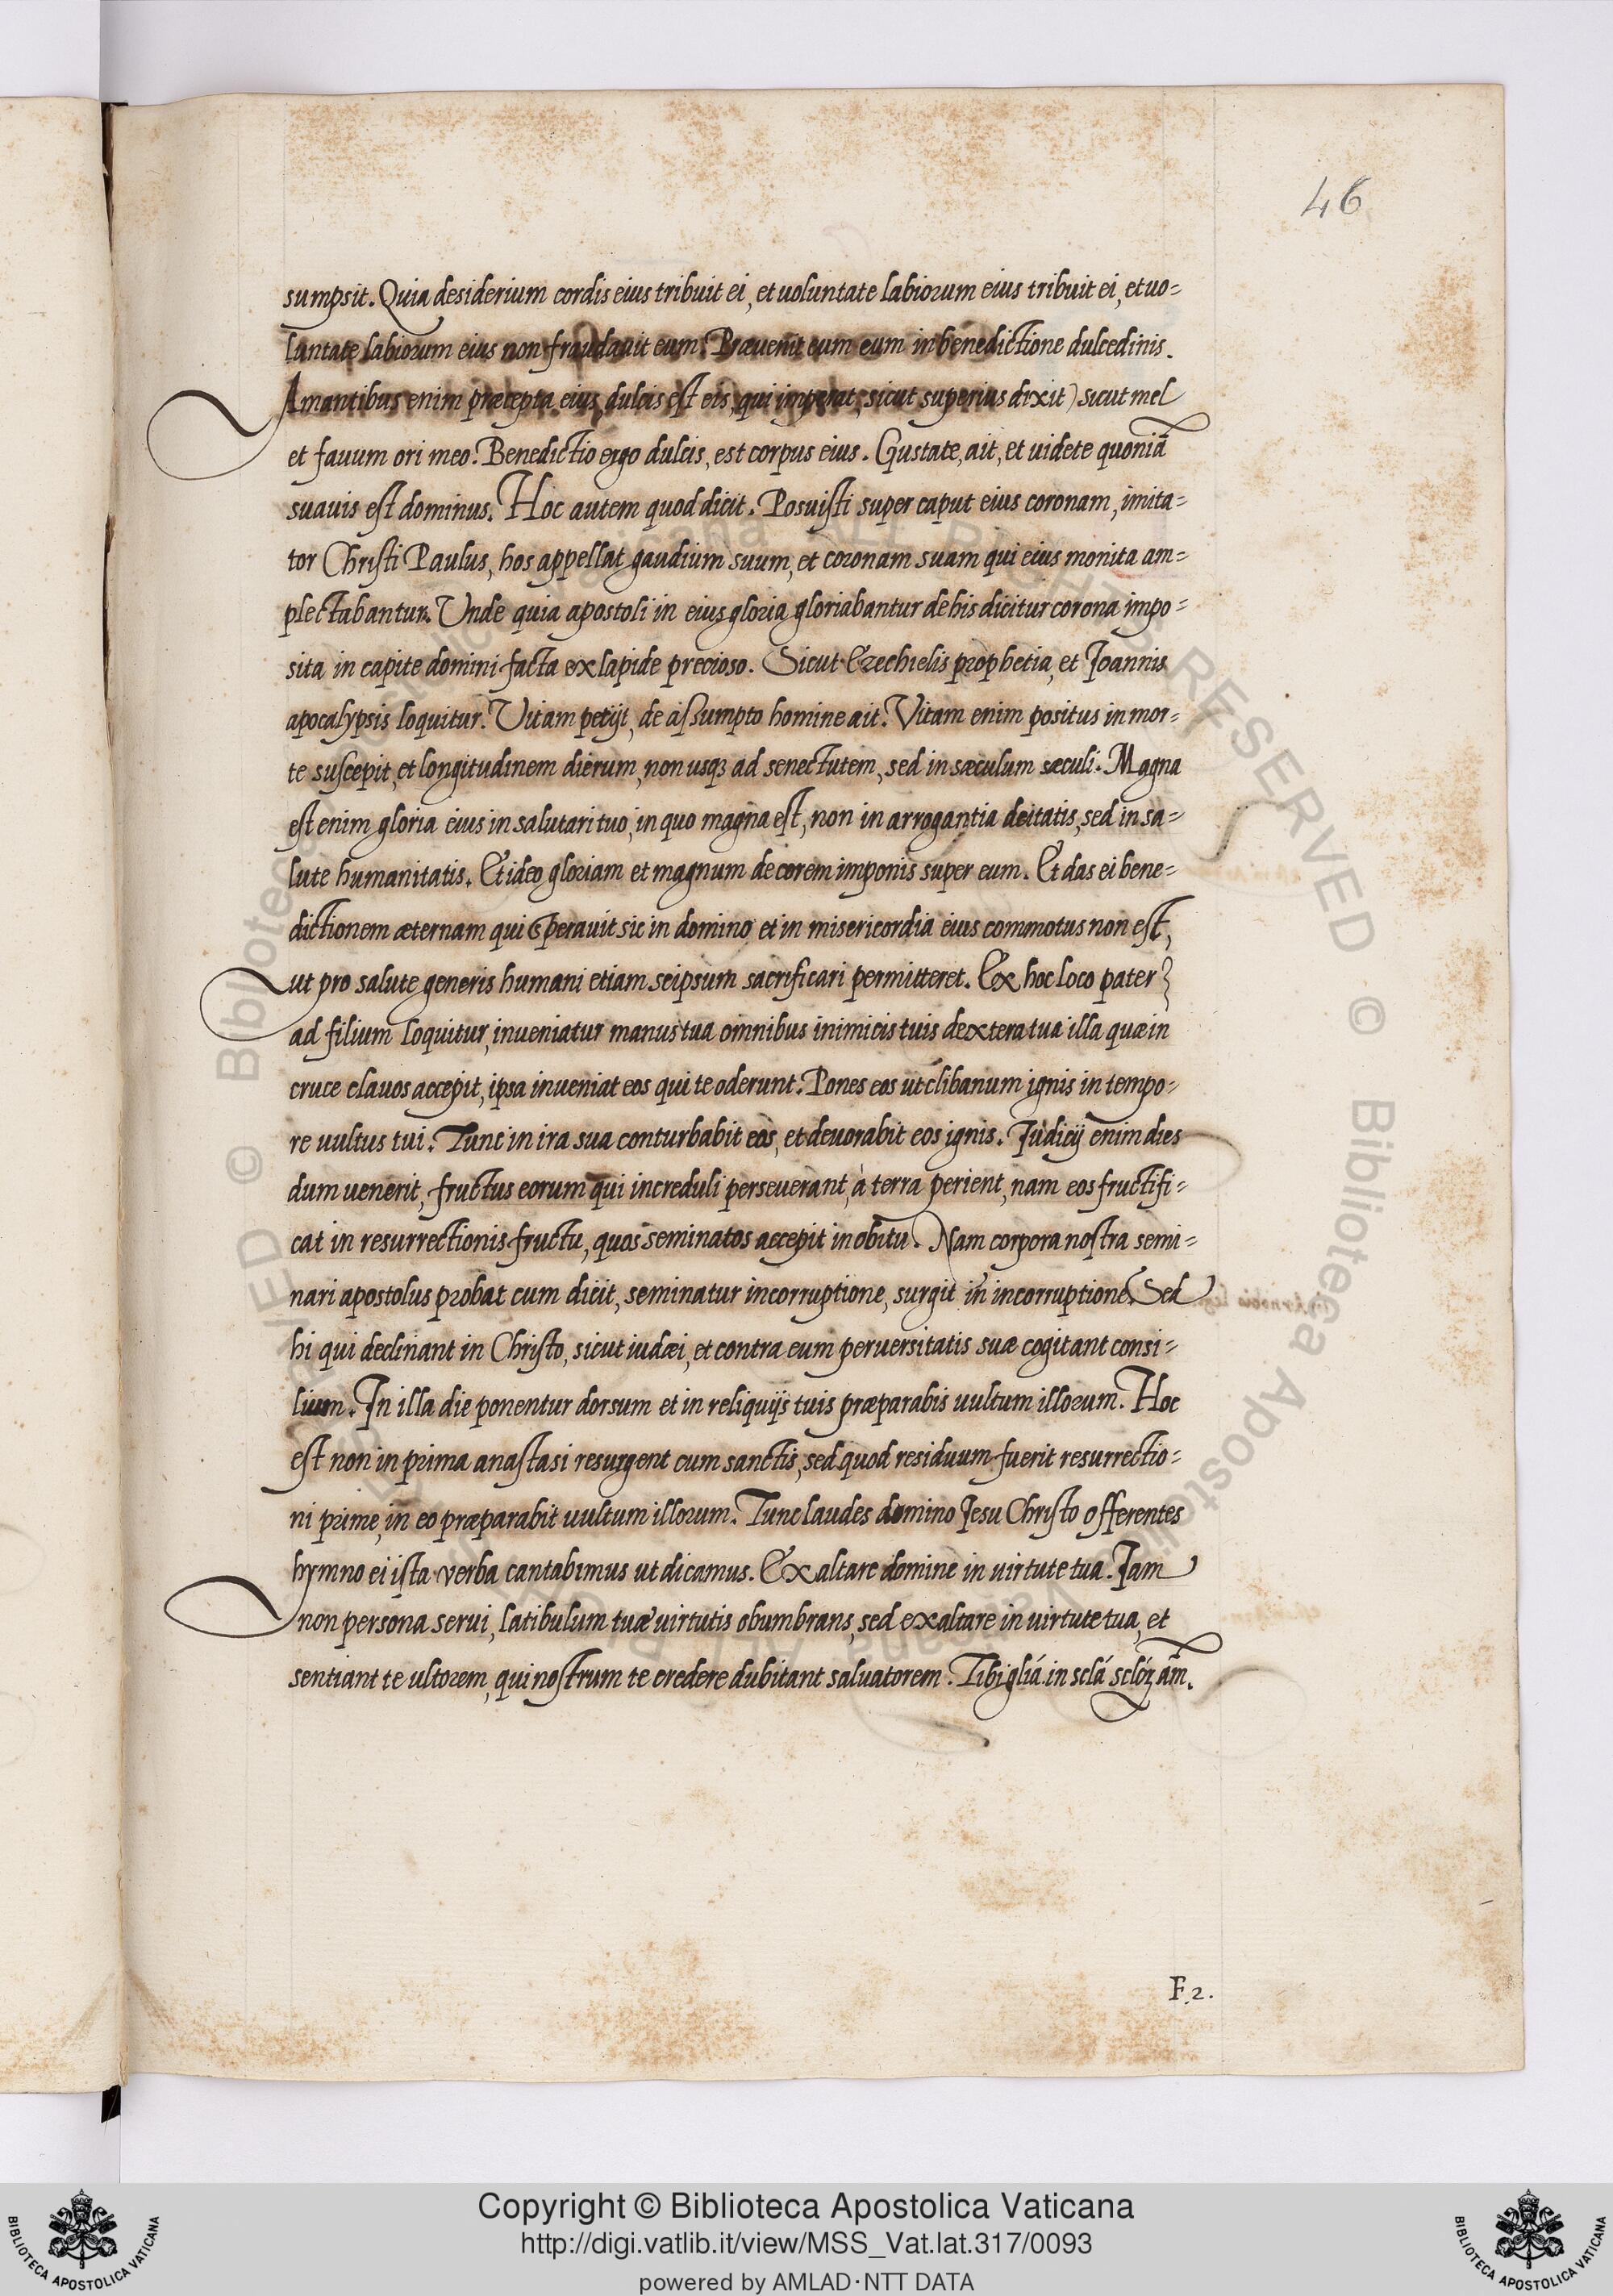 46
sumpsit. Quia desiderium cordis eius tribuit ei, et uoluntate labiorum eius tribuit ei, et uo=
luntate labiorum eius non fraudauit eum. Præuenit eum eum in benedictione dulcedinis.
Amantibus enim præcepta eius, dulcis est eis, qui imperat, sicut superius dixit) sicut mel
et fauum ori meo. Benedictio ergo dulcis, est corpus eius. Gustate, ait, et uidete quoniã
suauis est dominus. Hoc autem quod dicit. Posuisti super caput eius coronam, imita=
tor Christi Paulus, hos appellat gaudium suum, et coronam suam qui eius monita am=
plectabantur. Unde quia apostoli in eius gloria gloriabantur de his dicitur corona impo=
sita in capite domini facta ex lapide precioso. Sicut Ezechielis prophetia, et Joannis
apocalypsis loquitur. Vitam petijt, de assumpto homine ait. Vitam enim positus in mor=
te suscepit, et longitudinem dierum, non usqȝ ad senectutem, sed in sæculum sæculi. Magna
est enim gloria eius in salutari tuo, in quo magna est, non in arrogantia deitatis, sed in sa=
lute humanitatis. Et ideo gloriam et magnum decorem imponis super eum. Et das ei bene=
dictionem æternam qui sperauit sic in domino et in misericordia eius commotus non est,
ut pro salute generis humani etiam seipsum sacrificari permitteret. Ex hoc loco pater
ad filium loquitur, inueniatur manus tua omnibus inimicis tuis dextera tua illa quæ in
cruce clauos accepit, ipsa inueniat eos qui te oderunt. Pones eos ut clibanum ignis in tempo=
re uultus tui. Tunc in ira sua conturbabit eos, et deuorabit eos ignis. Judicij enim dies
dum uenerit, fructus eorum qui increduli perseuerant, à terra perient, nam eos fructifi=
cat in resurrectionis fructu, quos seminatos accepit in obitu. Nam corpora nostra semi=
nari apostolus probat cum dicit, seminatur in corruptione, surgit in incorruptione. Sed
hi qui declinant in Christo, sicut iudæi, et contra eum peruersitatis suæ cogitant consi=
lium. In illa die ponentur dorsum et in reliquijs tuis præparabis uultum illorum. Hoc
est non in prima anastasi resurgent cum sanctis, sed quod residuum fuerit resurrectio=
ni prime, in eo præparabit uultum illorum. Tunc laudes domino Jesu Christo offerentes
hymno ei ista verba cantabimus ut dicamus. Exaltare domine in uirtute tua. Jam
non persona serui, latibulum tuæ uirtutis obumbrans, sed exaltare in uirtute tua, et
sentiant te ultorem, qui nostrum te credere dubitant saluatorem. Tibi gliá in sclá sclóꝝ ám̃.
F.2.
Copyright © Biblioteca Apostolica Vaticana
http://digi.vatlib.it/view/MSS_Vat.lat.317/0093
powered by AMLAD·NTT DATA
BIBLIOTECA APOSTOLICA VATICANA
BIBLIOTECA APOSTOLICA VATICANA